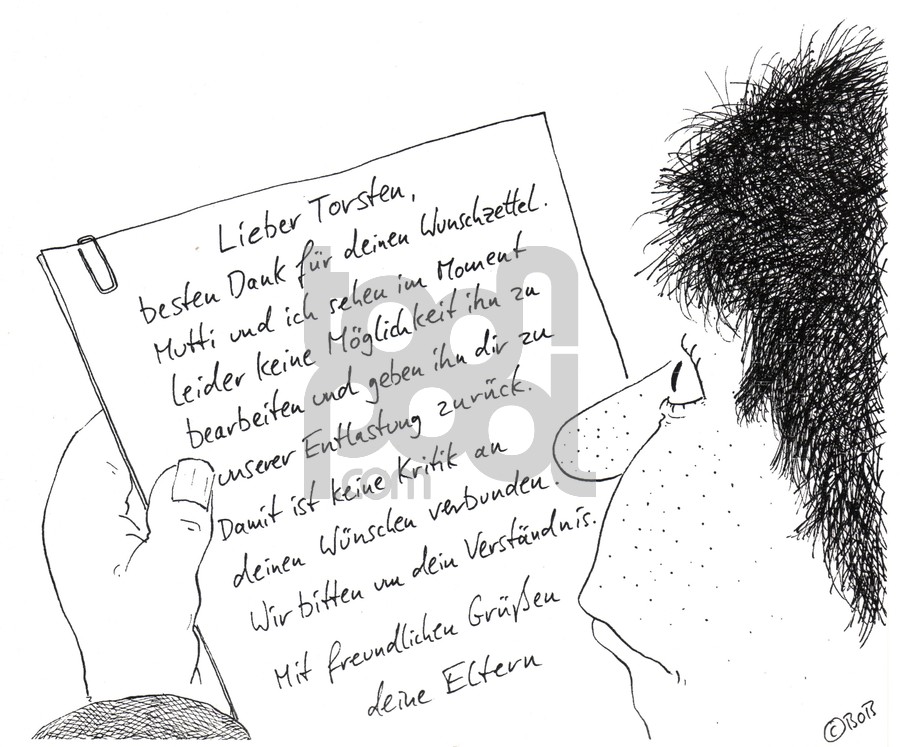 Lieber Torsten,
besten Dank für deinen Wunschzettel.
Mutti und ich sehen im Moment
leider keine Möglichkeit ihn zu
bearbeiten und geben ihn dir zu
unserer Entlastung zurück.
Damit ist keine Kritik an
deinen Wünschen verbunden.
Wir bitten um dein Verständnis.
Mit freundlichen Grüßen
deine Eltern
toonpool
.com
©BOB